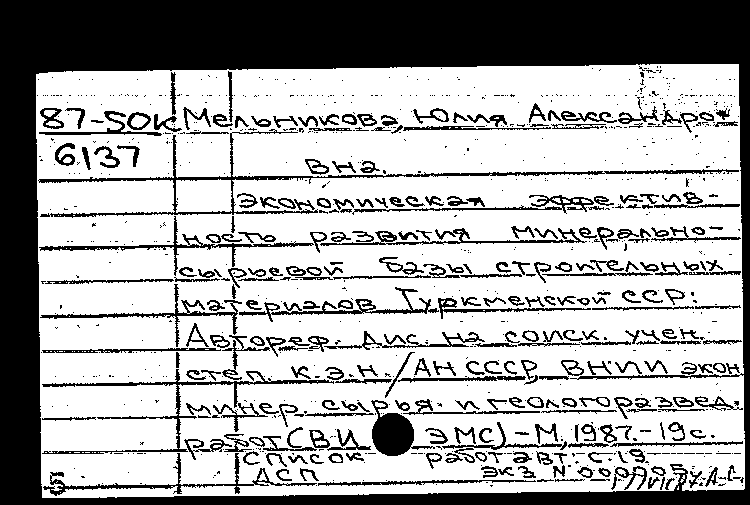 87-50К Мельникова, Юлия Александро-
6137 вна.
Экономическая эффектив-
ность развития минерально-
сырьевой базы строительных
материалов Туркменской ССР:
Автореф. дис. на соиск. учен.
степ. к.э.н. / АН СССР, ВНИИ экон.
минер. сырья. и геологоразвед.
работ (ВИЭМС) - М, 1987. - 19 с.
Список работ авт: с. 19
ДСП экз N 000005